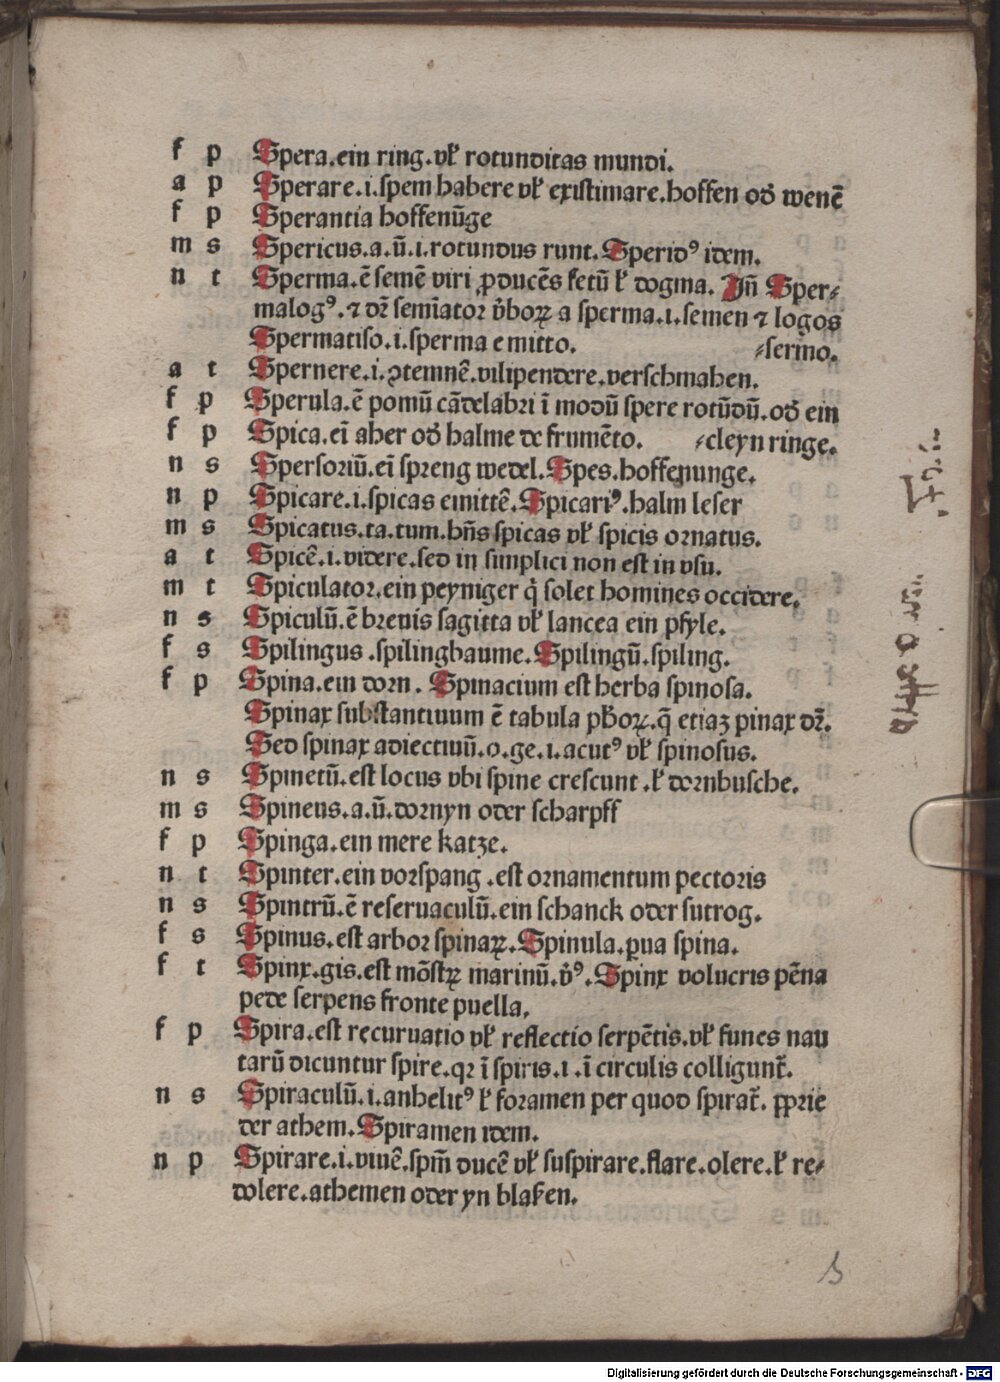 f p Spera.ein ring.vl̛ rotunditas mundi.
a p Sperare.i.spem habere vl̛ existimare.hoffen od̛ wenē
f p Sperantia hoffenūge
m s Spericus.a.ū.i.rotundus runt.Speridꝰ idem.
n t Sperma.ē semē viri ꝓducēs fetū l̛ dogma. Jn̄ Sper⸗
malogꝰ.⁊ dr̄ semīator v̛boꝝ a sperma.i.semen ⁊ logos
Spermatiso.i.sperma emitto. ⸗sermo.
a t Spernere.i.ꝯtemnē.vilipendere.verschmahen.
f p Sperula.ē pomū cādelabri ī modū spere rotūdū.od̛ ein
f p Spica.eī aher od̛ halme de frumēto. ⸗cleyn ringe.
n s Spersoriū.eī spreng wedel.Spes.hoffenunge.
n p Spicare.i.spicas emittē.Spicariꝰ.halm leser
m s Spicatus.ta.tum.hn̄s spicas vl̛ spicis ornatus.
a t Spicē.i.videre.sed in simplici non est in vsu.
m t Spiculator.ein peyniger q̇ solet homines occidere.
n s Spiculū.ē breuis sagitta vl̛ lancea ein pfyle.
f s Spilingus .spilingbaume.Spilingū.spiling.
f p Spina.ein dorn. Spinacium est herba spinosa.
Spinax substantiuum ē tabula ph̛oꝝ.q̄ etiaꝫ pinax dr̄.
Sed spinax adiectiuū.o.ge.i.acutꝰ vl̛ spinosus.
n s Spinetū.est locus vbi spine crescunt.l̛ dornbusche.
m s Spineus.a.ū.dornyn oder scharpff
f p Spinga.ein mere katze.
n t Spinter.ein vorspang .est ornamentum pectoris
n s Spintrū.ē reseruaculū.ein schanck oder sutrog.
f s Spinus.est arbor spinaꝝ.Spinula.ꝑua spina.
f t Spinx.gis.est mōstꝝ marinū.v̛ꝰ.Spinx volucris pēna
pede serpens fronte puella.
f p Spira.est recuruatio vl̛ reflectio serpētis.vl̛ funes nau
tarū dicuntur spire.qꝛ ī spiris.i.ī circulis colligunt̛.
n s Spiraculū.i.anhelitꝰ l̛ foramen per quod spirat̛. ꝓprie
der athem.Spiramen idem.
n p Spirare.i.viuē.spm̄ ducē vl̛ suspirare.flare.olere.l̛ re⸗
dolere.athemen oder yn blasen.
Digitalisierung gefördert durch die Deutsche Forschungsgemeinschaft - DFG